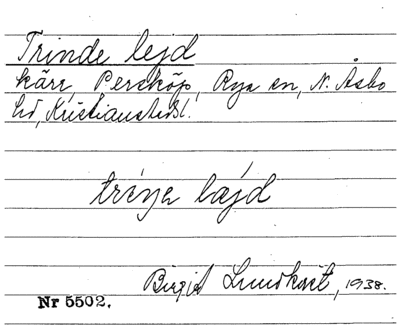 Trinde lejd
kärr, Persköp, Rya sn, N. Åsbo
hd, Kristianstads l.
Birgit Lundkvist, 1938.
Nr 5502.